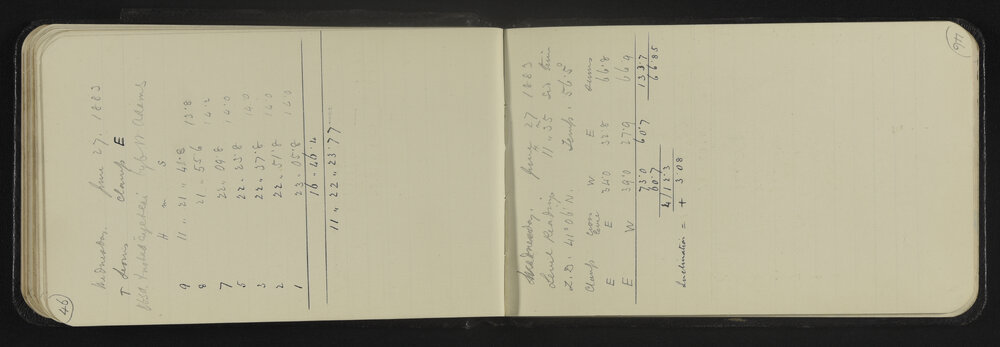 46
Wednesday. June 27. 1883
T Leonis Clamp E
Obsd Instead by W Adams
H m S
9 11 „ 21 „ 41.8 13.8
8 21 „ 55.6 14.2
7 22 „ 09.8 14.0
5 22 „ 23.8 14.0
3 22 „ 37.8 14.0
2 22 „ 51.8 14.0
1 23 „ 05.8
16 „ 46.4
11 „ 22 „ 23.77
47
Wednesday. June 27 1883
Level Readings 11 H 35 m Sid time
Z.D. 41° 06' N. Temp. 56.5°
Clamp Cross Line W E Sums
E E 34.0 32.8 66.8
E W 39.0 27.9 66.9
73.0 60.7 133.7
60.7 66.85
4/12.3
Inclination = + 3.08